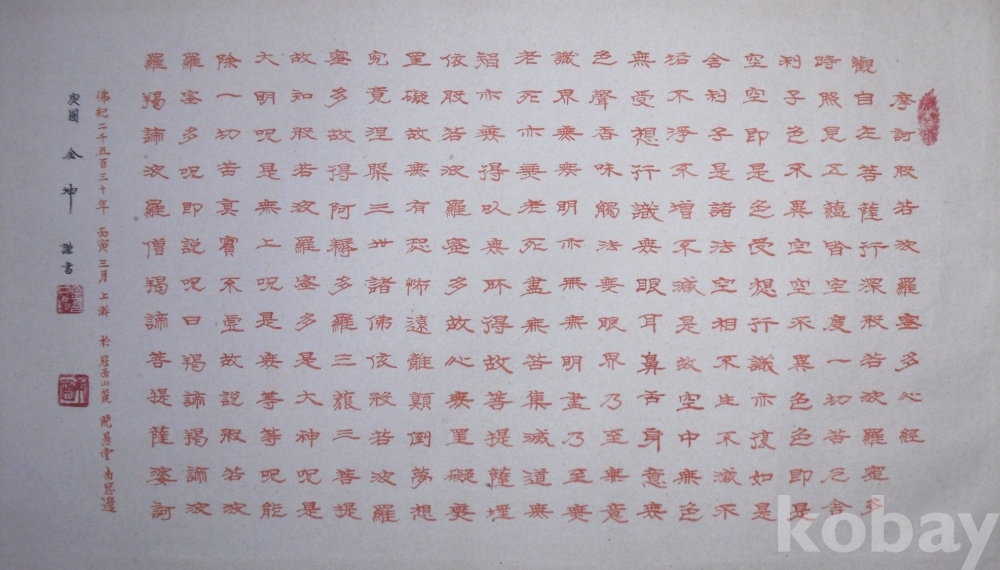 摩訶般若波羅蜜多心經
觀自在菩薩行深般若波羅蜜多
時照見五蘊皆空度一切苦厄舍
利子色不異空空不異色色即是
空空即是色受想行識亦復如是
舍利子是諸法空相不生不滅不
垢不淨不增不減是故空中無色
無受想行識無眼耳鼻舌身意無
色聲香味觸法無眼界乃至無意
識界無無明亦無無明盡乃至無
老死亦無老死盡無苦集滅道無
智亦無得以無所得故菩提薩埵
依般若波羅蜜多故心無罣礙無
罣礙故無有恐怖遠離顛倒夢想
究竟涅槃三世諸佛依般若波羅
蜜多故得阿耨多羅三藐三菩提
故知般若波羅蜜多是大神呪是
大明呪是無上呪是無等等呪能
除一切苦真實不虛故說般若波
羅蜜多呪即說呪曰羯諦羯諦波
羅羯諦波羅僧羯諦菩提薩婆訶
佛紀二千五百三十年 丙寅 三月 上澣 於 冠岳山麓 晩愚堂 南窓邊
金 坤 謹書
kobay